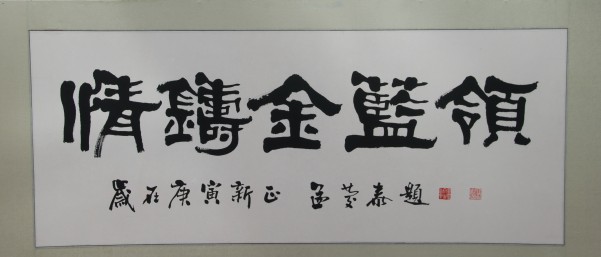 情鑄金藍領
歲在庚寅新正 孟慶泰題